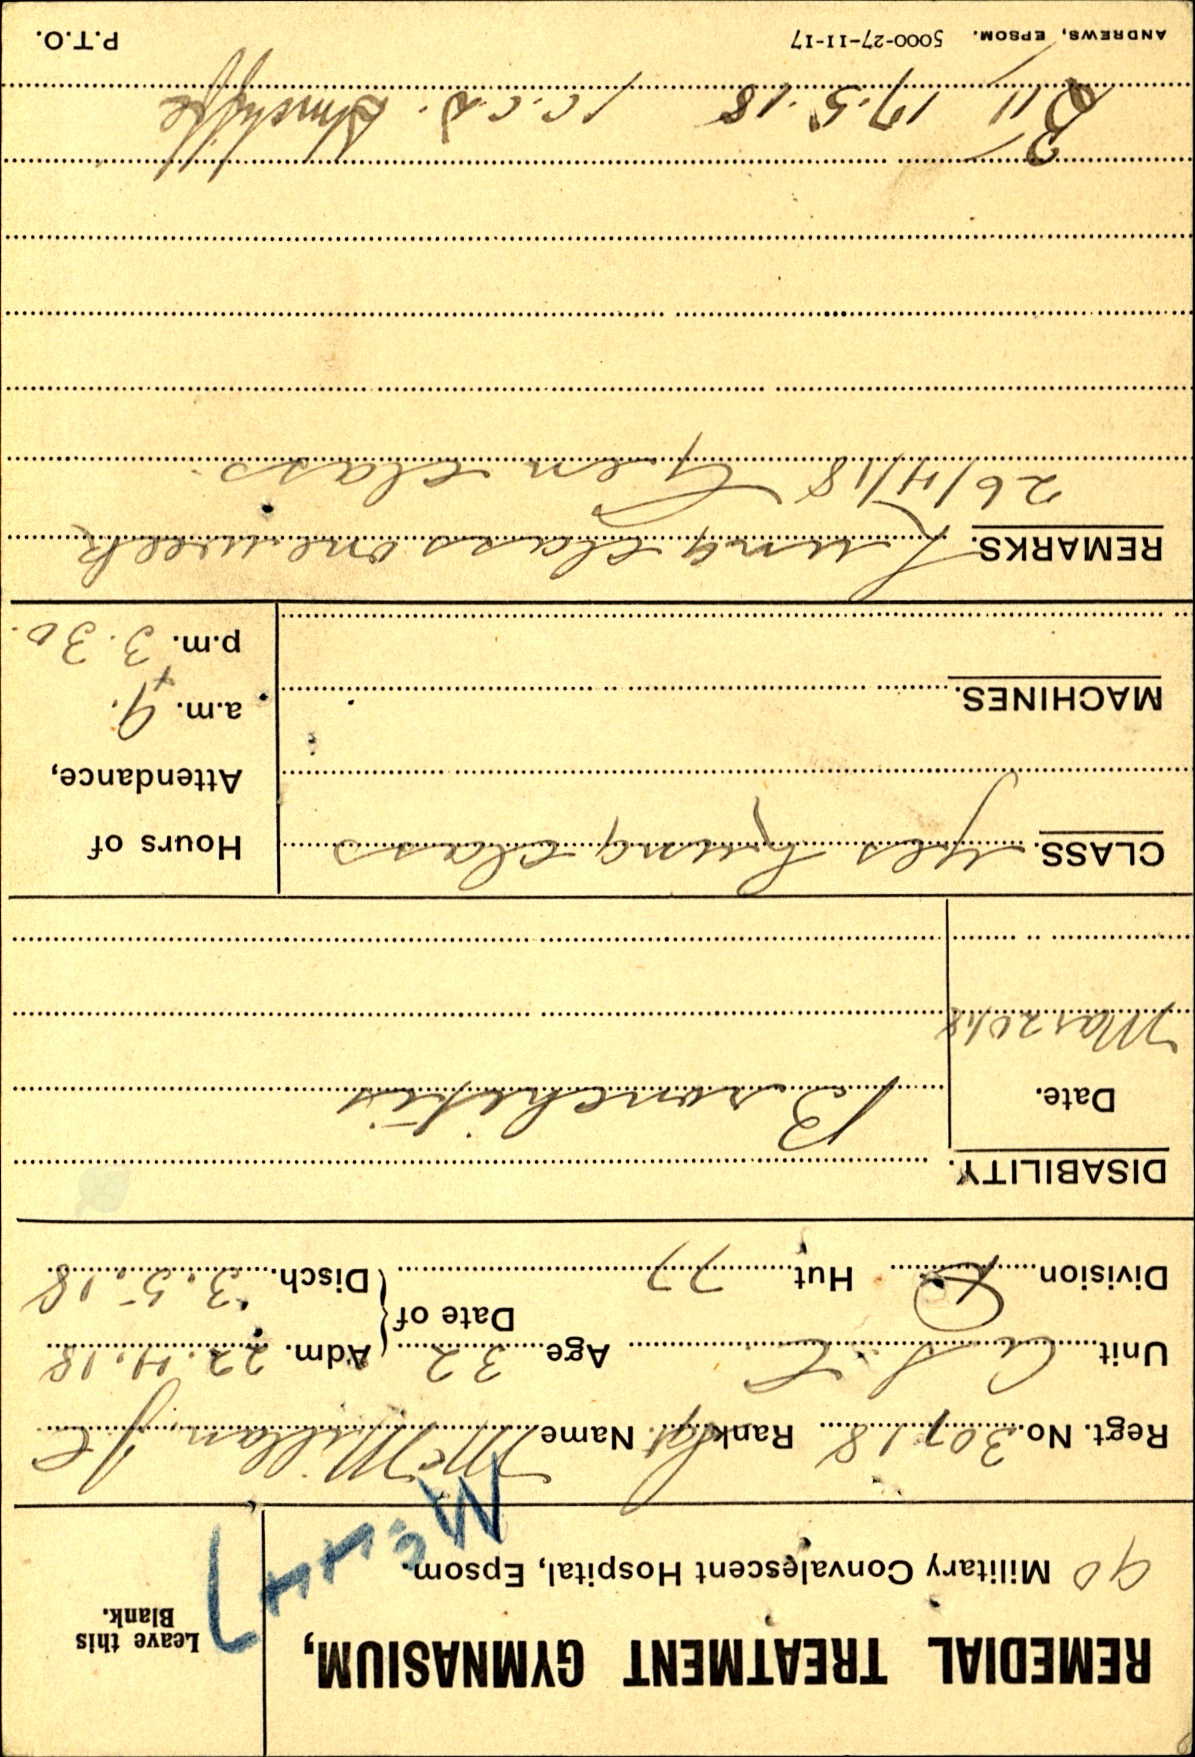 REMEDIAL TREATMENT GYMNASIUM,
Leave this
Blank.
90 Military Convalescent Hospital, Epsom.
Regt. No. 30718 Rank Sgt Name McMillan J C
Unit Age 32 Date of Adm. 22.4.18
Division D Hut 77 Disch. 3.5.18
DISABILITY.
Date. Bronchitis
Mar 20/18
CLASS. yes Lung class
Hours of
Attendance,
MACHINES.
a.m. 9. +
p.m. 3.30.
REMARKS. Lung class one week
26/4/18 Gen class.
B II 17.5.18 1 C.C.D. Shorncliffe
ANDREWS, EPSOM. 5000-27-11-17 P.T.O.